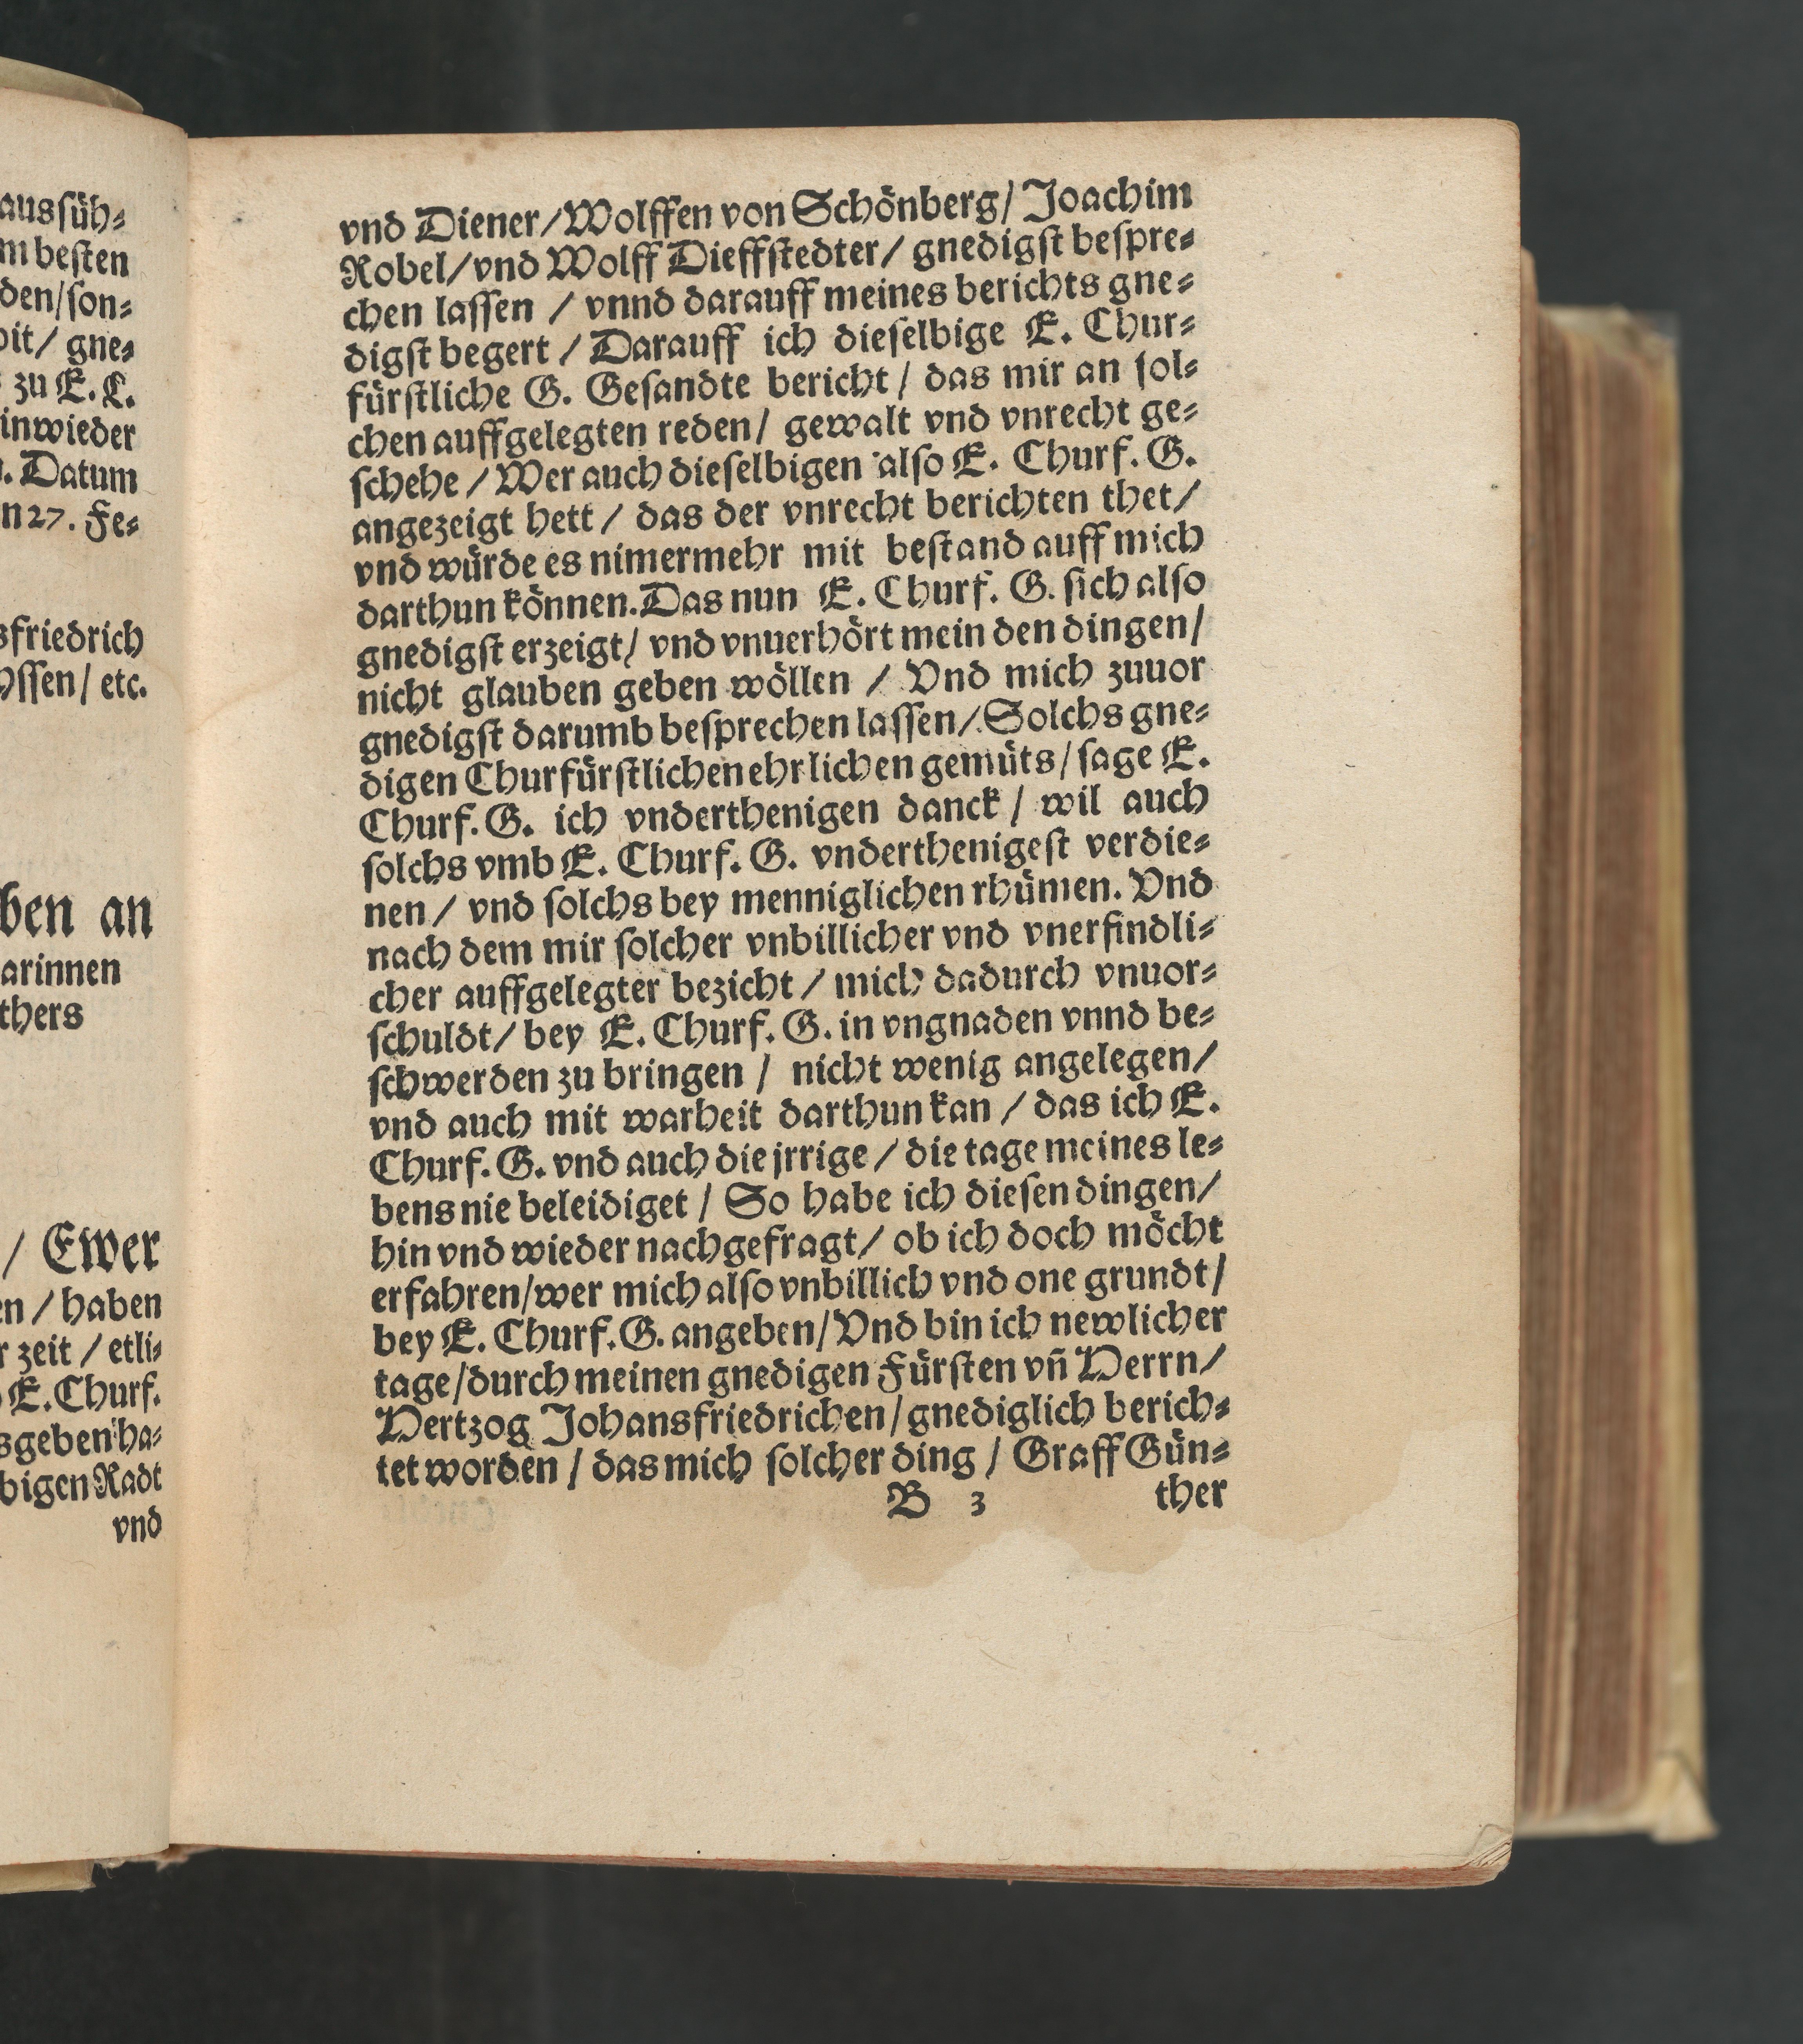 ausfüh⸗
m besten
den/son⸗
oit/ gne⸗
zu E. L.
inwieder
. Datum
n 27. Fe⸗
sfriedrich
yssen/ etc.
ben an
arinnen
thers
/ Ewer
en / haben
r zeit / etli⸗
E. Churf.
sgeben ha⸗
bigen Radt
vnd
vnd Diener/Wolffen von Schönberg/ Joachim
Robel/vnd Wolff Dieffstedter/ gnedigst bespre⸗
chen lassen / vnnd darauff meines berichts gne⸗
digst begert / Darauff ich dieselbige E. Chur⸗
fürstliche G. Gesandte bericht / das mir an sol⸗
chen auffgelegten reden/ gewalt vnd vnrecht ge⸗
schehe / Wer auch dieselbigen also E. Churf. G.
angezeigt hett / das der vnrecht berichten thet/
vnd würde es nimermehr mit bestand auff mich
darthun können. Das nun E. Churf. G. sich also
gnedigst erzeigt/ vnd vnuerhört mein den dingen/
nicht glauben geben wöllen / Vnd mich zuuor
gnedigst darumb besprechen lassen/ Solchs gne⸗
digen Churfürstlichen ehrlichen gemüts/ sage E.
Churf. G. ich vnderthenigen danck / wil auch
solchs vmb E. Churf. G. vnderthenigest verdie⸗
nen / vnd solchs bey menniglichen rhümen. Vnd
nach dem mir solcher vnbillicher vnd vnerfindli⸗
cher auffgelegter bezicht / mich dadurch vnuor⸗
schuldt/ bey E. Churf. G. in vngnaden vnnd be⸗
schwerden zu bringen / nicht wenig angelegen/
vnd auch mit warheit darthun kan / das ich E.
Churf. G. vnd auch die jrrige / die tage meines le⸗
bens nie beleidiget / So habe ich diesen dingen/
hin vnd wieder nachgefragt/ ob ich doch möcht
erfahren/wer mich also vnbillich vnd one grundt/
bey E. Churf. G. angeben/ Vnd bin ich newlicher
tage/durch meinen gnedigen Fürsten vñ Herrn/
Hertzog Johansfriedrichen/gnediglich berich⸗
tet worden / das mich solcher ding / Graff Gün⸗
B 3 ther